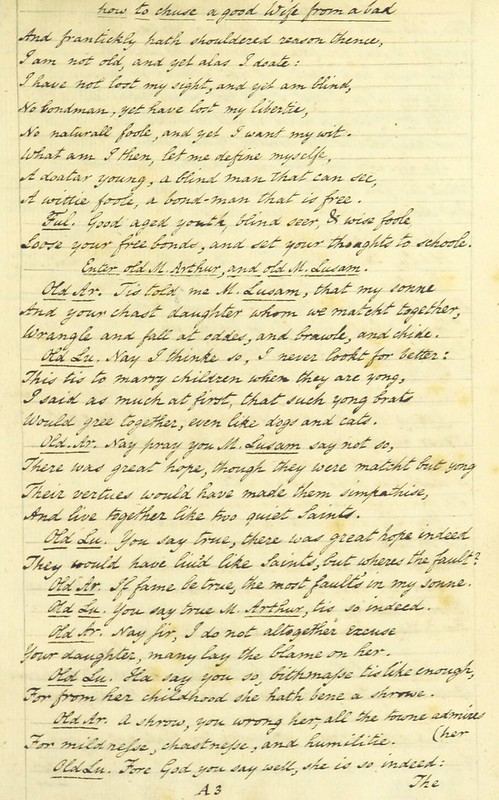 how to chuse a good Wife from a bad
And frantickly hath shouldered reason thence,
I am not old, and yet alas I doate:
I have not lost my sight, and yet am blind,
No bondman, yet have lost my libertie,
No naturall foole, and yet I want my wit.
What am I then, let me define myselfe,
A doatar young, a blind man that can see,
A wittie foole, a bond-man that is free.
Ful. Good aged youth, blind seer, & wise foole
Loose your free bonds, and set your thoughts to schoole.
Enter old M. Arthur, and old M. Lusam.
Old Ar. Tis told me M. Lusam, that my sonne
And your chast daughter whom we matcht together,
Wrangle and fall at oddes, and brawle, and chide.
Old Lu. Nay I thinke so, I never lookt for better:
This tis to marry children when they are yong,
I said as much at first, that such yong brats
Would gree together, even like dogs and cats.
Old Ar. Nay pray you M. Lusam say not so,
There was great hope, though they were matcht but yong
Their vertues would have made them simpathise,
And live together like two quiet Saints.
Old Lu. You say true, there was great hope indeed
They would have liu'd like Saints, but wheres the fault?
Old Ar. If fame be true, the most fault's in my sonne.
Old Lu. You say true M. Arthur, tis so indeed.
Old Ar. Nay sir, I do not altogether excuse
Your daughter, many lay the blame on her.
Old Lu. Ha say you so, bithmasse tis like enough,
For from her childhood she hath bene a shrowe.
Old Ar. A shrow, you wrong her, all the towne admires
(her
For mildnesse, chastnesse, and humilitie.
Old Lu. Fore God you say well, she is so indeed:
A3 The